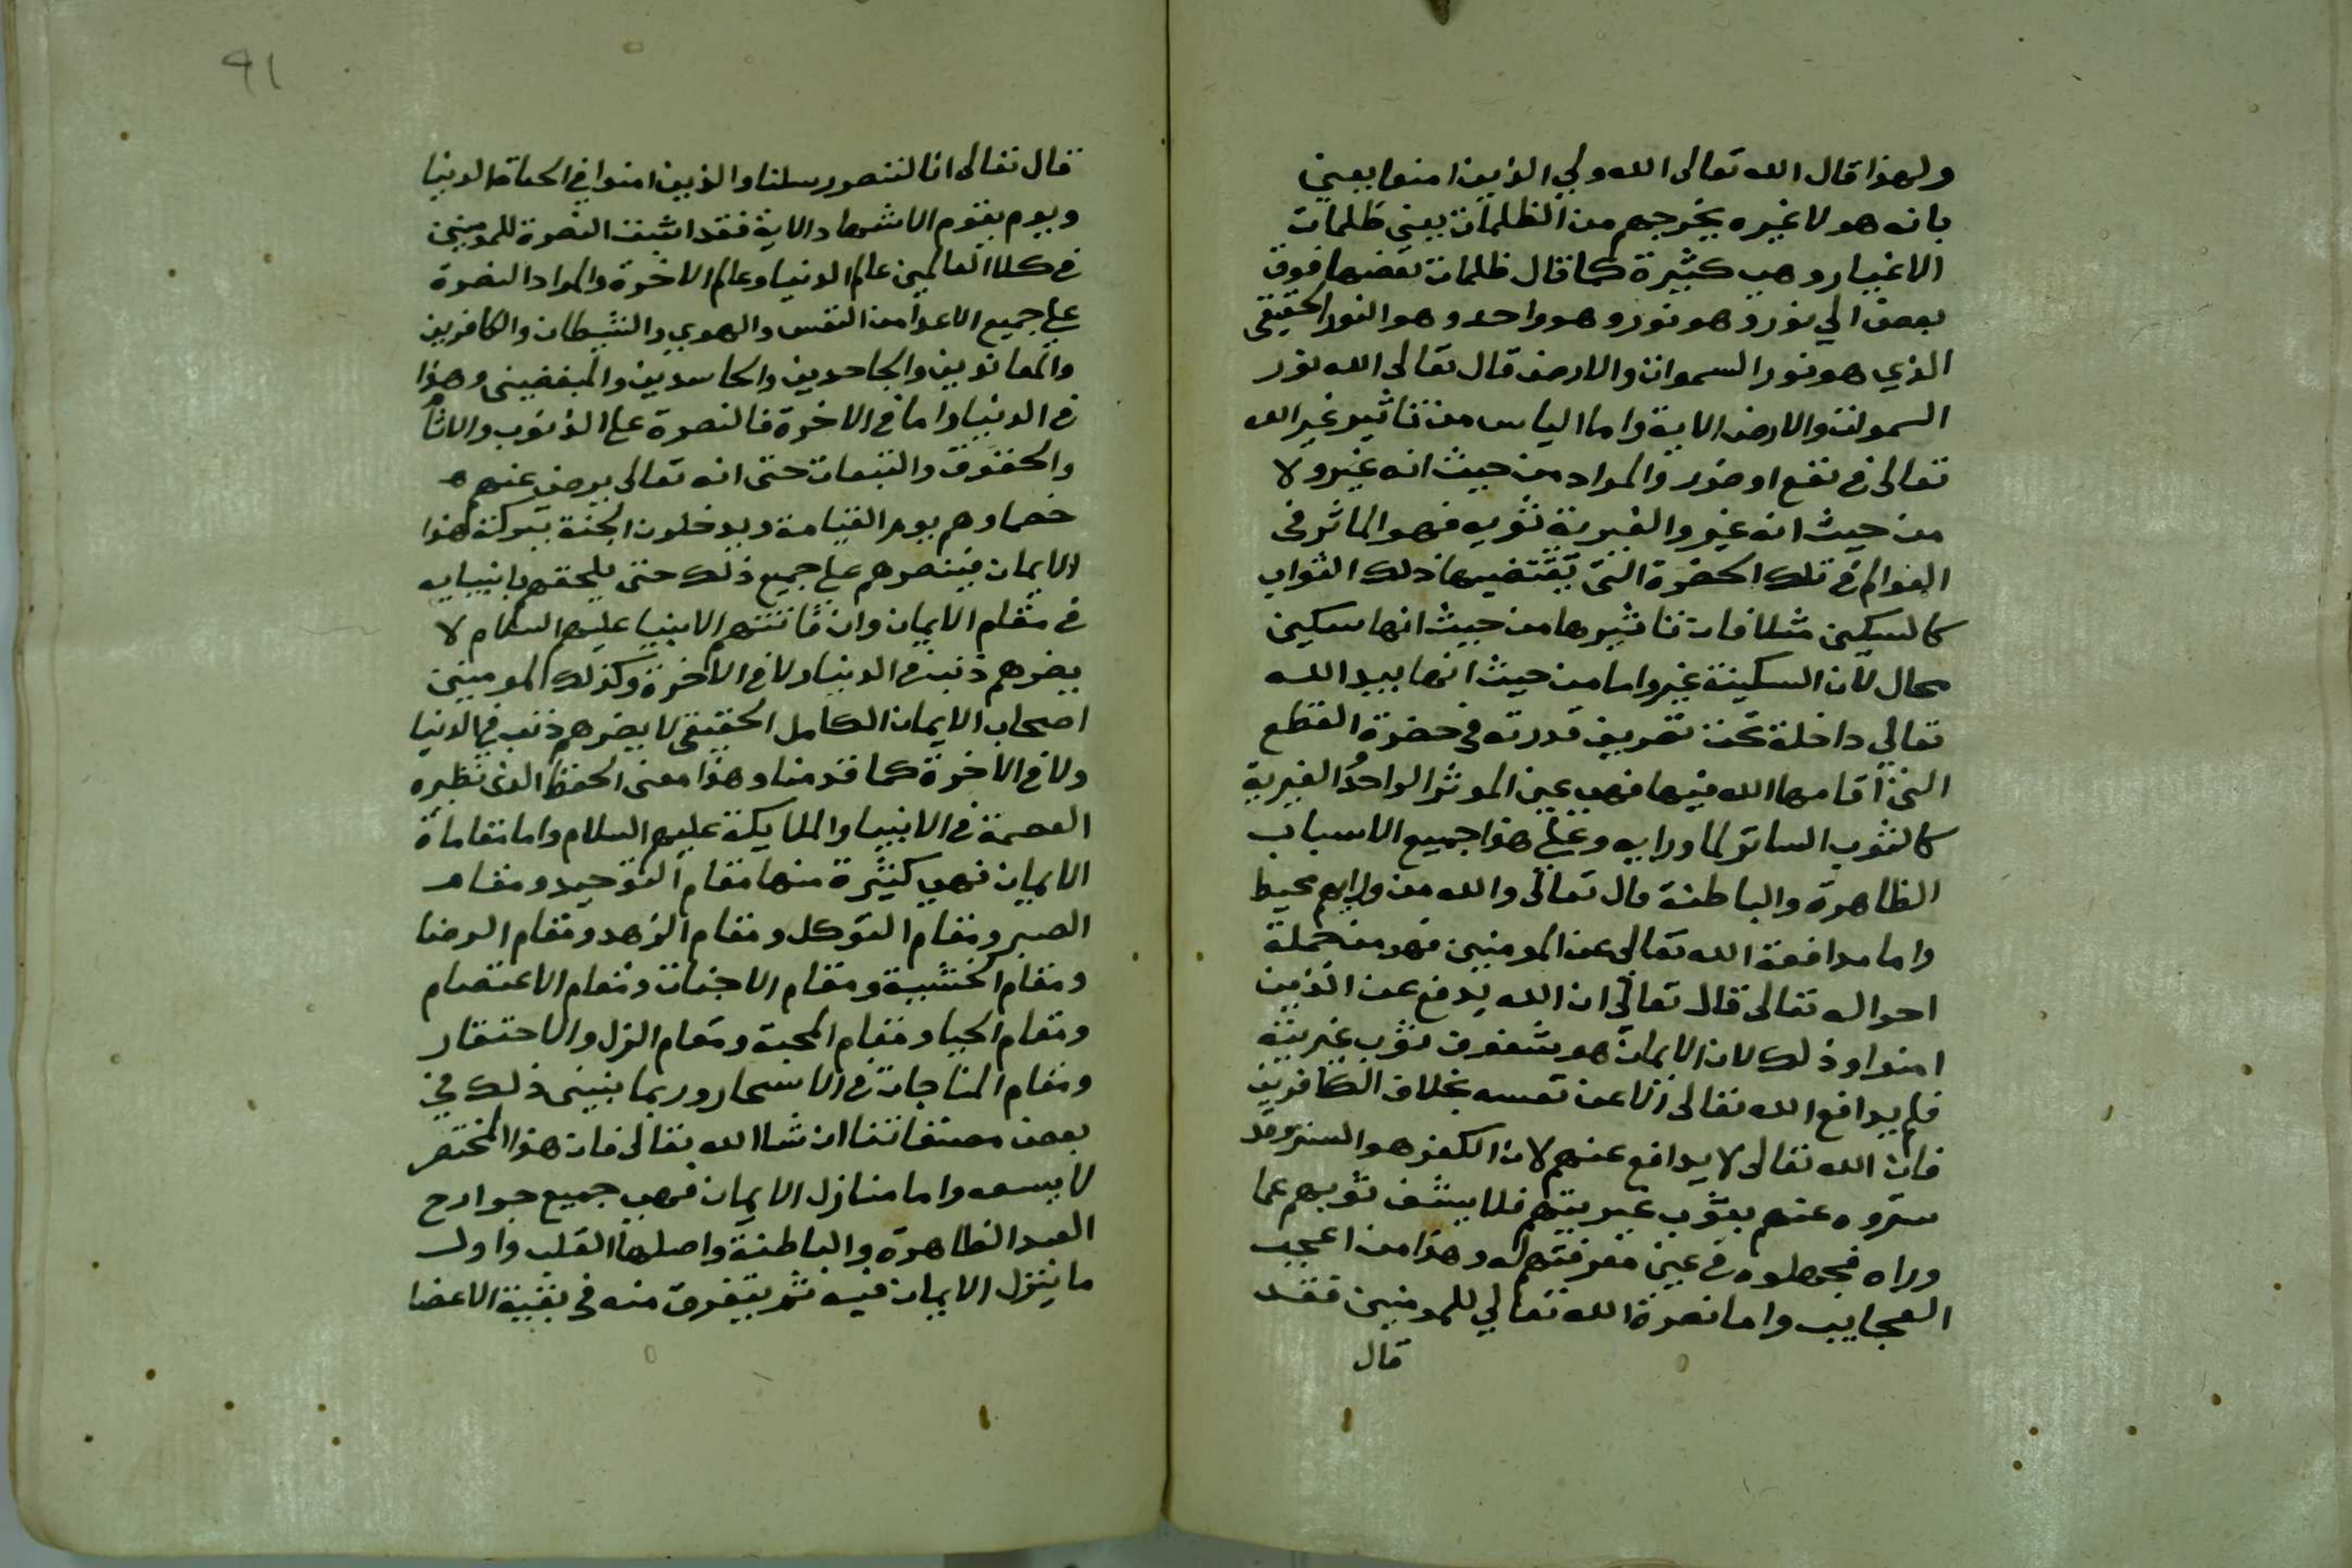 ولهذا قال الله تعالى الله ولي الذين امنوا يعني
بانه هو لا غيره يخرجهم من الظلمات يعني ظلمات
الاغيار وهي كثيرة كما قال ظلمات بعضها فوق
بعض الي نوره وهو نور وهو واحد وهو النور الحقيقي
الذي هو نور السموات والارض قال تعالى الله نور
السموات والارض الاية واما الياس من تاثير غير الله
تعالى في نفع او ضرر والمراد من حيث انه غير ولا
من حيث انه غير والغيرية ثوبه فهو الماثر في
العوالم في تلك الحضرة التى يقتضيها ذلك الثواب
كالسكين مثلا فان تاثيرها من حيث انها سكين
محال لان السكينة غير واما من حيث انها بيد الله
تعالي داخلة تحت تصريف قدرته في حضرة القطع
التى اقامها الله فيها فهي عين الموثر الواحد الغيرية
كالثوب الساتر لما ورايه وعلى هذا جميع الاسباب
الظاهرة والباطنة قال تعالى والله من ورايهم محيط
واما مدافعة الله تعالى عن المومنين فهو من جملة
احواله تعالى قال تعالى ان الله يدفع عن الذين
امنوا وذلك لان الايمان هو شفوف ثوب غيريته
فلم يدافع الله تعالى الا عن نفسه بخلاف الكافرين
فان الله تعالى لا يدافع عنهم لان الكفر هو الستر وقد
ستروه عنهم بثوب غيريتهم فلا يشف ثوبهم عما
وراه فجهلوه في عين معرفتهم له وهذا من اعجب
العجايب واما نصرة الله تعالي للمومنين فقد
قال
٩١
قال تعالى انا لننصر رسلنا والذين امنوا في الحياة الدنيا
ويوم يقوم الاشهاد الاية فقد اثبت النصرة للمومنين
في كلا العالمين عالم الدنيا وعالم الاخرة والمراد النصرة
على جميع الاعدا من النفس والهوي والشيطان والكافرين
والمعاندين والجاحدين والحاسدين والمبغضين وهذا
في الدنيا واما في الاخرة فالنصرة على الذنوب والاثام
والحقوق والتبعات حتى انه تعالى يرضي عنهم
خصماوهم يوم القيامة ويدخلون الجنة ببركة هذا
الايمان فينصرهم على جميع ذلك حتى يلحقهم بانبيايه
في مقام الايمان وان فاتتهم الانبيا عليهم السلام لا
يضرهم ذنب في الدنيا ولا في الاخرة وكذلك المومنين
اصحاب الايمان الكامل الحقيقى لا يضرهم ذنب في الدنيا
ولا في الاخرة كما قدمنا وهذا معنى الحفظ الذى نظيره
العصمة في الانبيا والملايكة عليهم السلام واما مقامات
الايمان فهي كثيرة منها مقام التوحيد ومقام
الصبر ومقام التوكل ومقام الزهد ومقام الرضا
ومقام الخشية ومقام الاخبات ومقام الاعتصام
ومقام الحيا ومقام المحبة ومقام الذل والاحتقار
ومقام المناجات في الاسحار وربما نبين ذلك في
بعض مصنفاتنا ان شا الله تعالى فان هذا المختصر
لا يسعه واما منازل الايمان فهي جميع جوارح
العبد الظاهرة والباطنة واصلها القلب واول
ما ينزل الايمان فيه ثم يتفرق منه في بقية الاعضا